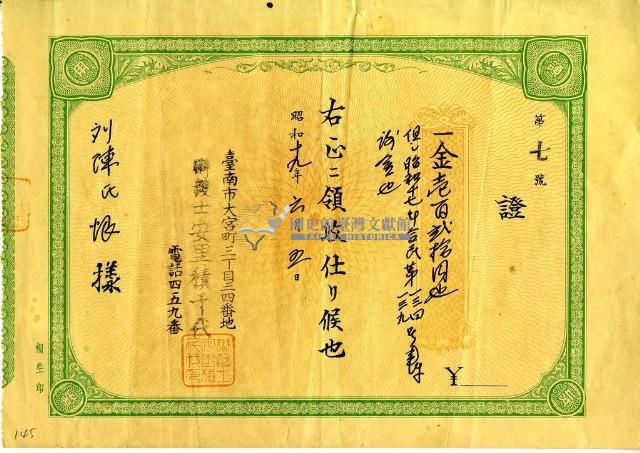 第七號
證
一金壱百貮拾円也
但シ昭和十七年合民第一三四
一三九号事件
謝金也
¥
右正ニ領收仕リ候也
昭和十九年六月五日
臺南市大宮町二丁目三四番地
辯護士安里積千代
電話四五九番
劉陳氏 樣
相生印
國史館臺灣文獻館
TAIWAN HISTORICA
145